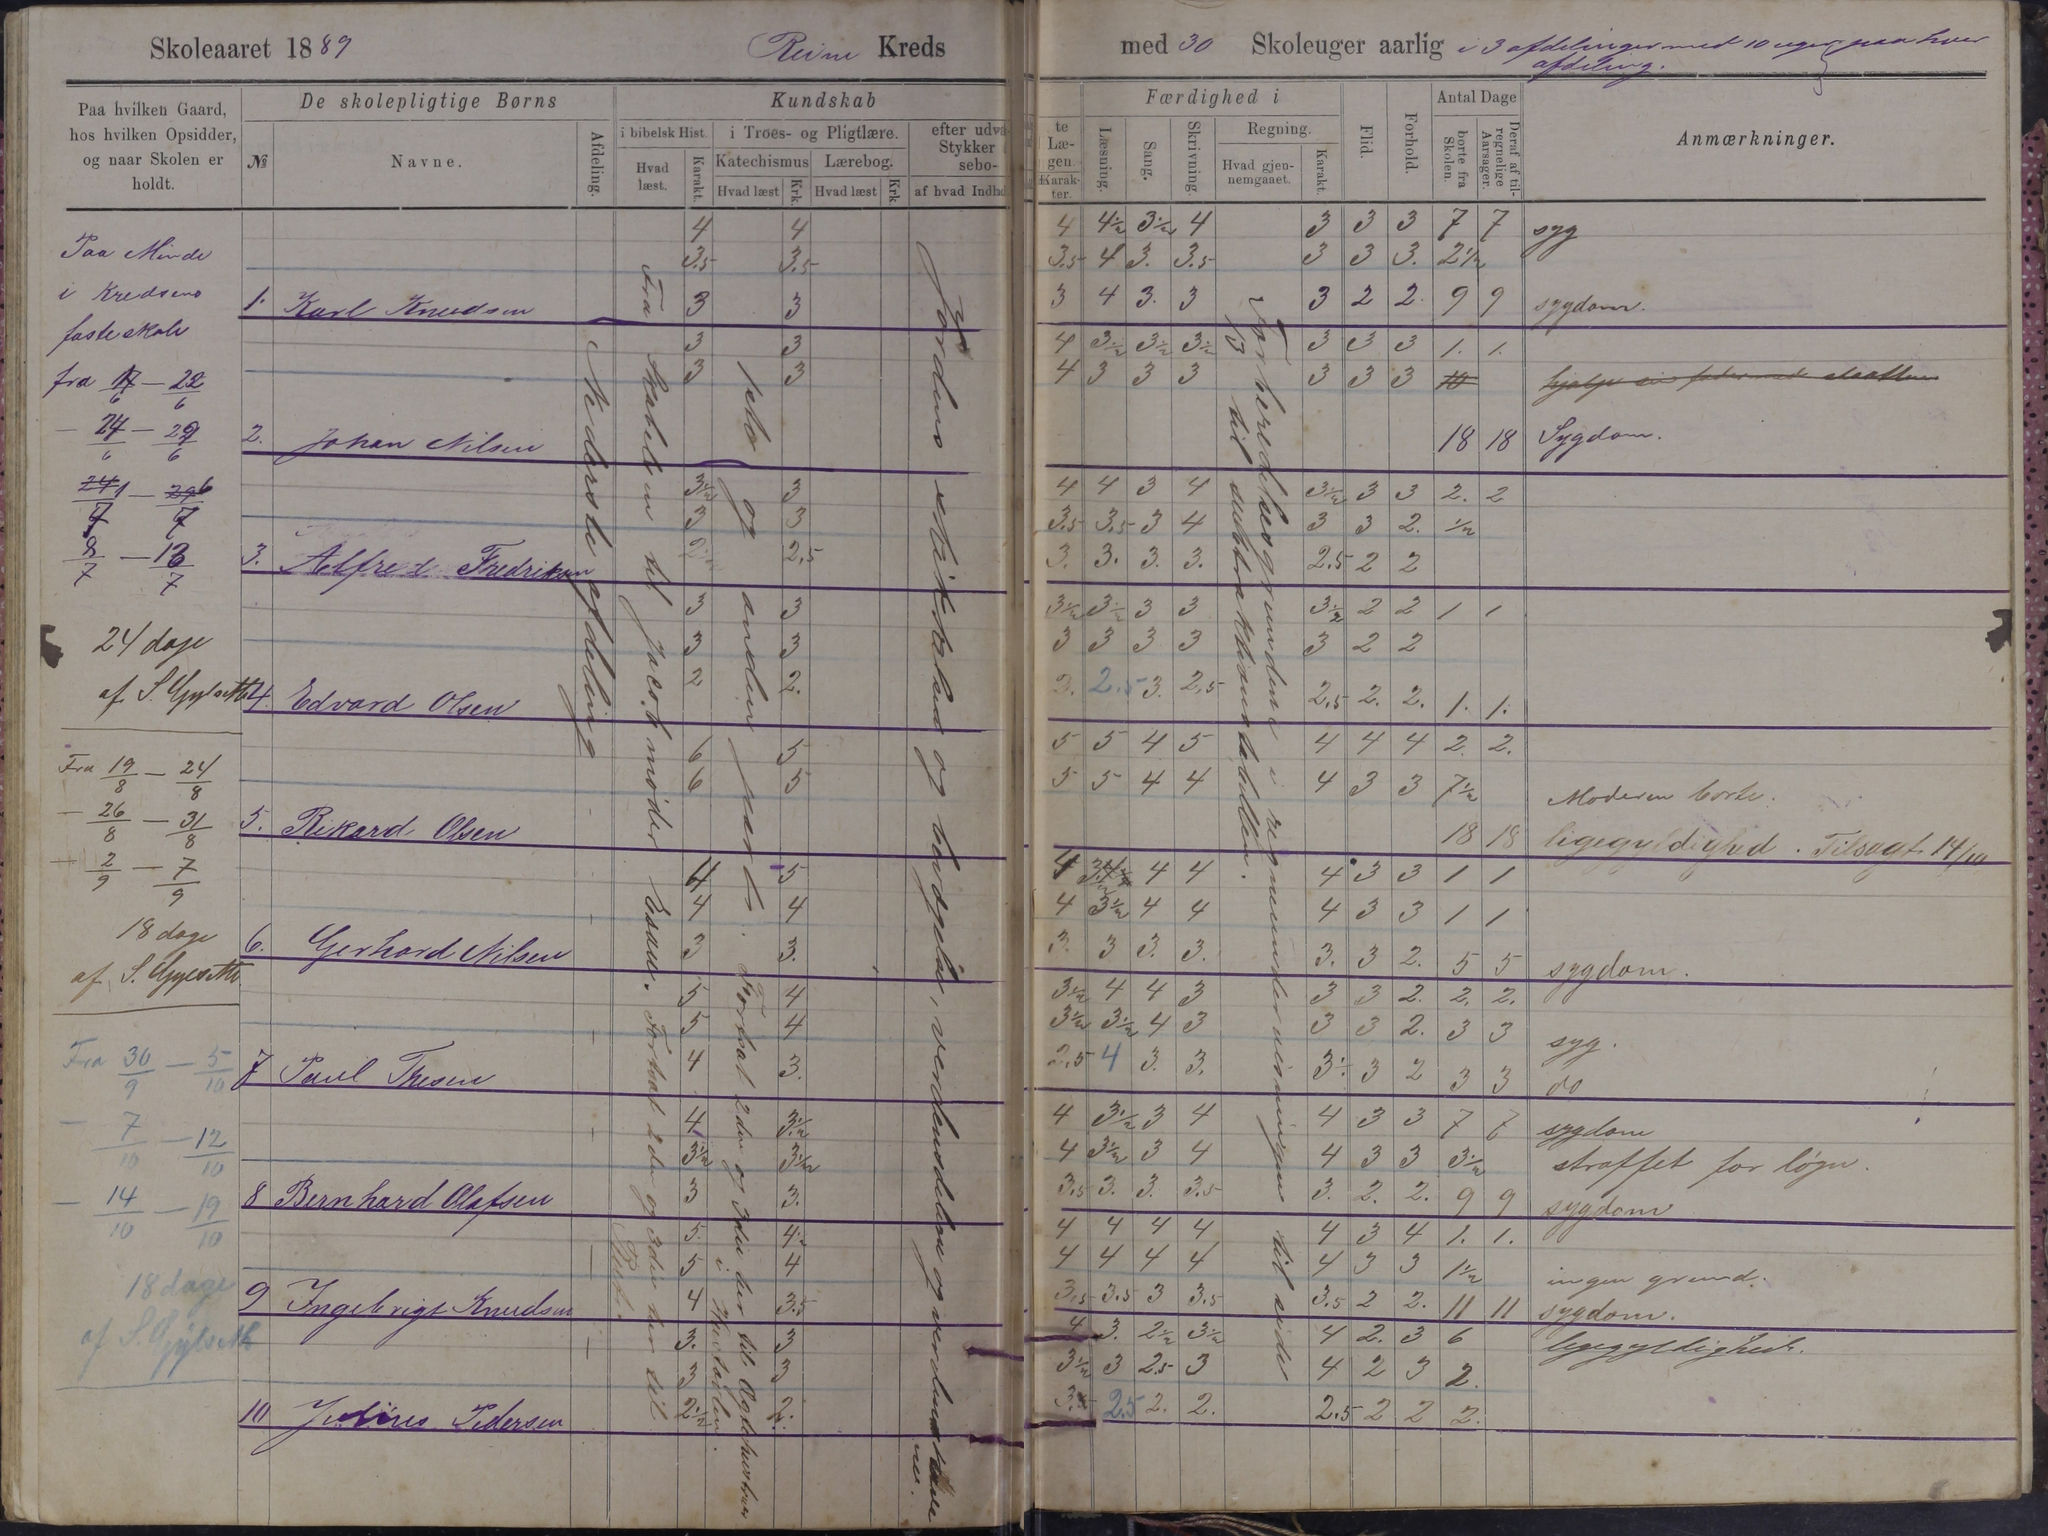 Skoleaaret 1889
Reine Kreds
med 30 Skoleuger aarlig i 3 afdelinger med 10 uger paa hver
afdeling.
Paa hvilken Gaard,
hos hvilken Opsidder,
og naar Skolen er
holdt.
De skolepligtige Børns
№
Navne.
Afdeling.
Kundskab
i bibelsk Hist.
Hvad
læst.
Karakt.
i Troes- og Pligtlære.
Katechismus
Hvad læst
Krk.
Lærebog.
Hvad læst
Krk.
efter udva-
Stykker
sebo-
af hvad Indho
te
Læ-
gen.
Karak-
ter.
Færdighed i
Læsning.
Sang.
Skrivning.
Regning.
Hvad gjen-
nemgaaet.
Karakt.
Flid.
Forhold.
Antal Dage
borte fra
Skolen.
Deraf af til-
regnelige
Aarsager.
Anmærkninger.
Paa Minde
i Kredsens
faste skole
fra 17/6 — 22/6
— 24/6 — 29/6
1/7 — 6/7
8/7 — 13/7
24 dage
af S. Gylseth
Fra 19/8 — 24/8
— 26/8 — 31/8
— 2/9 — 7/9
18 dage
af S. Gylseth
Fra 30/9 — 5/10
— 7/10 — 12/10
— 14/10 — 19/10
18 dage
af S. Gylseth
Nederste afdeling
Fra Skabelsen til Jacob møder Esau. Forhat 2den og 3die her til
1ste og anden part. Forhat 2den og 3die her til
Jordens skikkelse og bevægelse, vendecirkelene og
Forberedelsesgrundene i regneundervisningen til side
13 til subtraktionstabellen.
4 4 4 4½ 3½ 4 3 3 3 7 7 syg
3.5 3.5 3.5 4 3. 3.5 3 3 3. 2½
1. Karl Knudsen 3 3 3 4 3. 3 3 2 2. 9 9 sygdom.
3 3 4 3½ 3½ 3½ 3 3 3 1. 1.
3 3 4 3 3 3 3 3 3 10
2. Johan Nilsen 18 18 Sygdom.
3½ 3 4 4 3 4 3½ 3 3 2. 2
3 3 3.5 3.5 3 4 3 3 2. ½
3. Alfred Fredriksen 2½ 2.5 3. 3. 3. 3. 2.5 2 2
3 3 3½ 3½ 3 3 3½ 2 2 1 1
3 3 3 3 3 3 3 2 2
4. Edvard Olsen 2 2. 3. 2.5 3. 2.5 2.5 2. 2. 1. 1.
6 5 5 5 4 5 4 4 4 2. 2.
6 5 5 5 4 4 4 3 3 7½ Moderen borte.
5. Rikard Olsen 18 18 ligegyldighed. Tilsagt 14/10
4 5 4 4 4 4 3 3 1 1
4 4 4 3½ 4 4 4 3 3 1 1
6. Gerhard Nilsen 3 3. 3. 3 3. 3. 3. 3 2. 5 5 sygdom.
5 4 3½ 4 4 3 3 3 2. 2. 2.
5 4 3½ 3½ 4 3 3 3 2. 3 3 syg.
7 Paul Thesen 4 3. 2.5 4 3. 3. 3½ 3 2 3 3 do
4 3½ 4 3½ 3 4 4 3 3 7 7 sygdom
3½ 3½ 4 3½ 3 4 4 3 3 3½ straffet for løgn.
8 Bernhard Olafsen 3 3. 3.5 3. 3. 3.5 3. 2. 2. 9 9 sygdom
5. 4½ 4 4 4 4 4 3 4 1. 1.
5 4 4 4 4 4 4 3 3 1½ ingen grund.
9 Ingebrigt Knudsen 4 3.5 3.5 3.5 3 3.5 3.5 2 2. 11 11 sygdom.
3. 3 4 3. 2½ 3½ 4 2. 3 6 ligegyldighed.
3 3 3½ 3 2.5 3 4 2 3 2.
10 Julius Pedersen 2½ 2. 2.5 2. 2. 2.5 2 2 2.